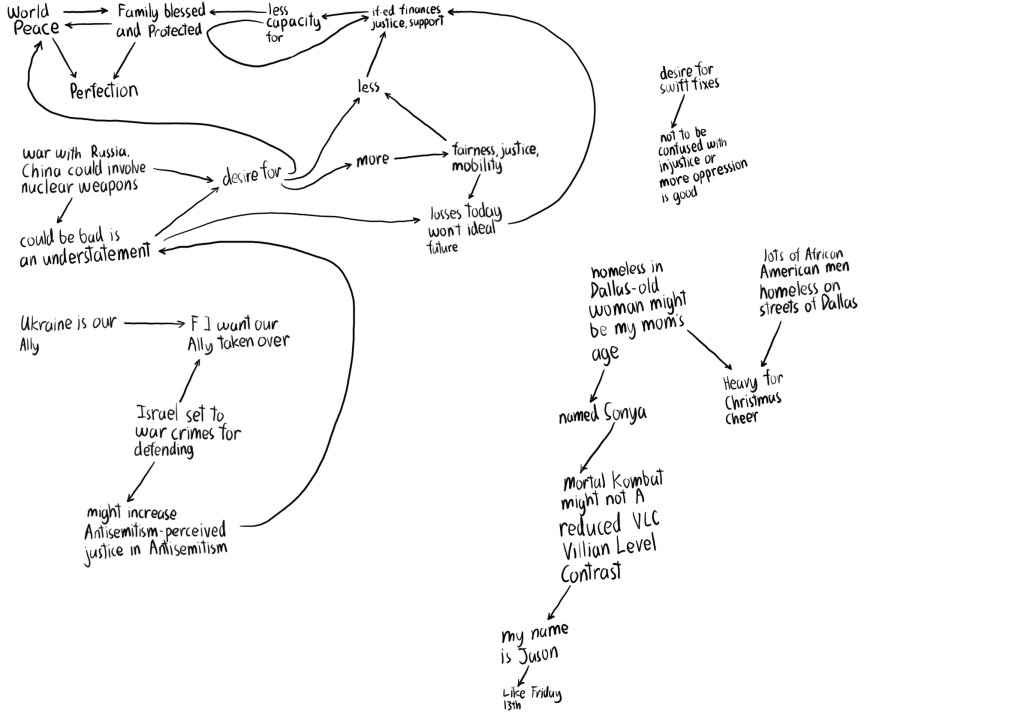 World
Peace
Family blessed
and Protected
less
capacity
for
finances
justice, support
Perfection
less
desire for
swift fixes
not to be
confused with
injustice or
more oppression
is good
war with Russia,
China could involve
nuclear weapons
desire for
more
fairness, justice,
mobility
could be bad is
an understatement
losses today
won't ideal
future
homeless in
Dallas-old
woman might
be my mom's
age
lots of African
American men
homeless on
streets of Dallas
Ukraine is our
Ally
F I want our
Ally taken over
Heavy for
Christmas
Cheer
Israel set to
war crimes for
defending
named Sonya
might increase
Antisemitism-perceived
justice in Antisemitism
Mortal Kombat
might not A
reduced VLC
Villian Level
Contrast
my name
is Jason
Like Friday
13th